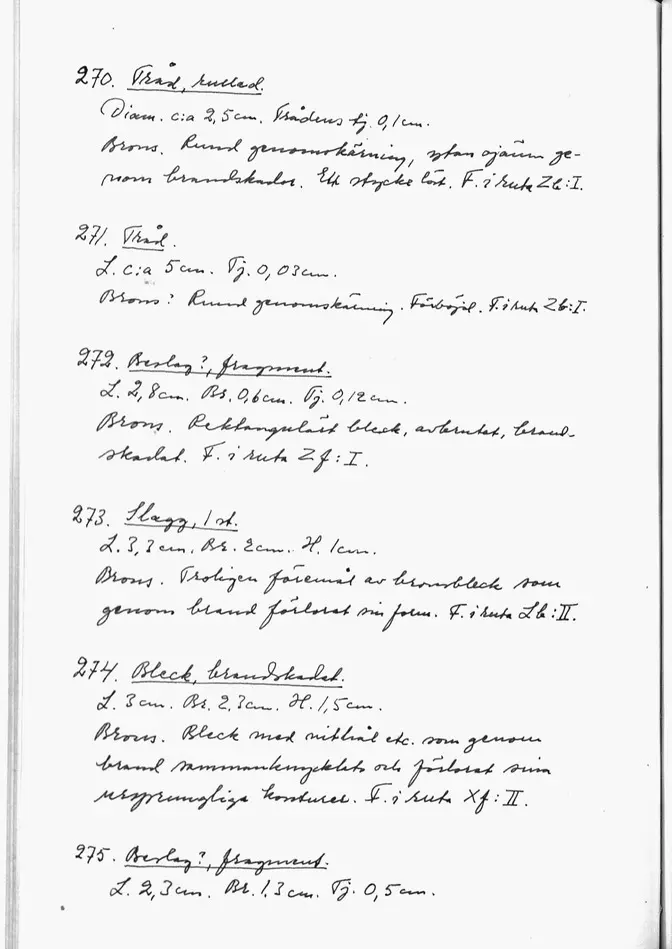 270. Tråd, rullad.
Diam. c:a 2,5 cm. Trådens tj. 0,1 cm.
Brons. Rund genomskärning, ytan ojämn ge-
nom brandskador. Ett stycke löst. F. i ruta Zb:I.
271. Tråd.
L. c:a 5 cm. Tj. 0,03 cm.
Brons? Rund genomskärning. Förböjd. F. i ruta Zb:I.
272. Beslag?, fragment.
L. 2,8 cm. Br. 0,6 cm. Tj. 0,12 cm.
Brons. Rektangulärt bleck, avbrutet, brand-
skadat. F. i ruta Zf:I.
273. Slagg, 1 st.
L. 3,3 cm. Br. 2 cm. H. 1 cm.
Brons. Troligen föremål av bronsbleck som
genom brand förlorat sin form. F. i ruta Lb:II.
274. Bleck, brandskadat.
L. 3 cm. Br. 2,3 cm. H. 1,5 cm.
Brons. Bleck med nithål etc. som genom
brand sammanknycklats och förlorat sina
ursprungliga konturer. F. i ruta Xf:II.
275. Beslag?, fragment.
L. 2,3 cm. Br. 1,3 cm. Tj. 0,5 cm.